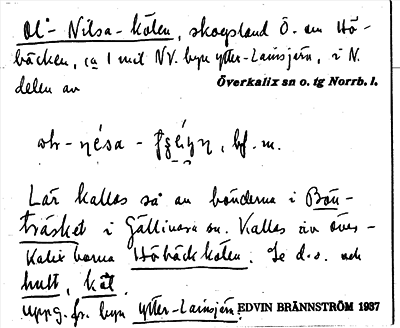 Ol-Nilsa-kölen, skogsland Ö. om Hö-
bäcken, ca 1 mil NV. byn Ytter-Lainsjärv, i N.
delen av Överkalix sn o. tg Norrb. l.
bf. m.
Lär kallas så av bönderna i Bön-
träsket i Gällivara sn. Kallas av över-
kalixborna Höbäckkölen. Se d.o. och
hult, kåt.
Uppg. fr. byn Ytter-Lainsjärv. EDVIN BRÄNNSTRÖM 1937